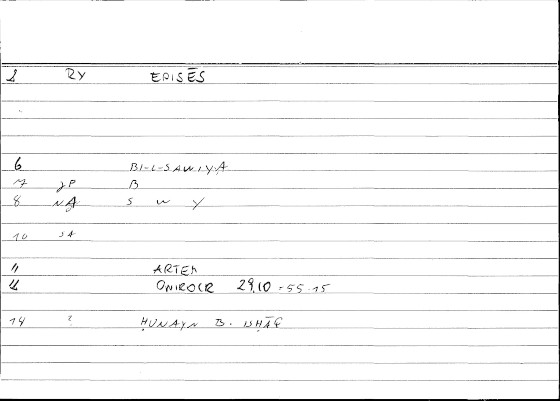 1 RY EPISĒS
6 BI-L-SAWIYA
7 JP B
8 NA S W Y
10 SA
11 ARTEM
12 ONIROCR 29.10 - 55.15
14 ? ḤUNAYN B. ISḤĀQ